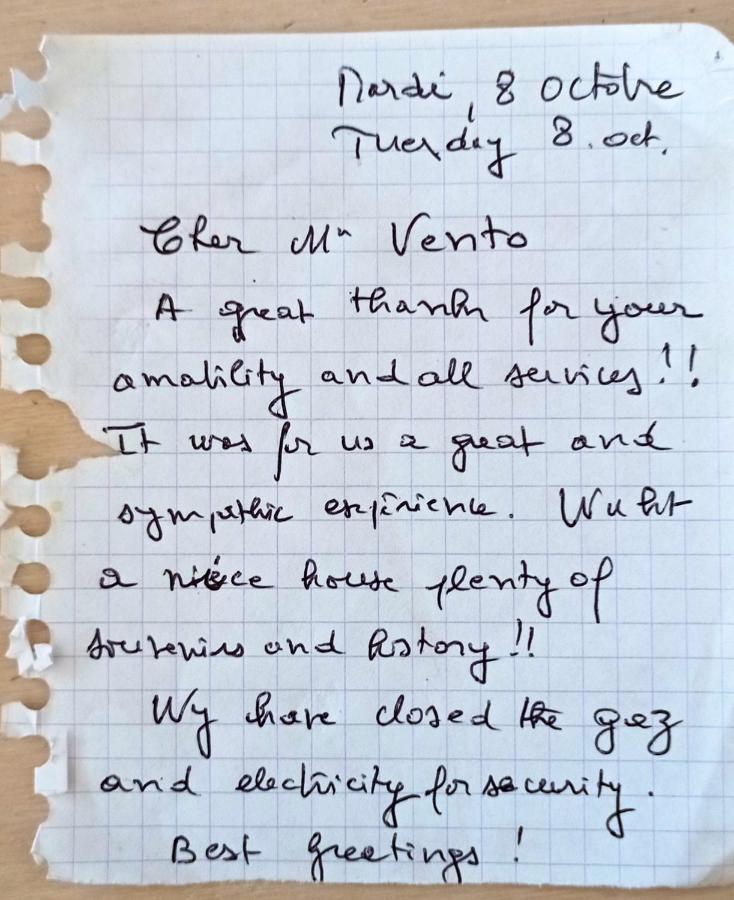 Mardi, 8 octobre
Tuesday 8. oct.
Cher Mr Vento
A great thanks for your
amability and all services!!
It was for us a great and
sympathic expérience.
a niéce house plenty of
souvenirs and history!!
Wy have closed the gaz
and electricity for security.
Best greetings!